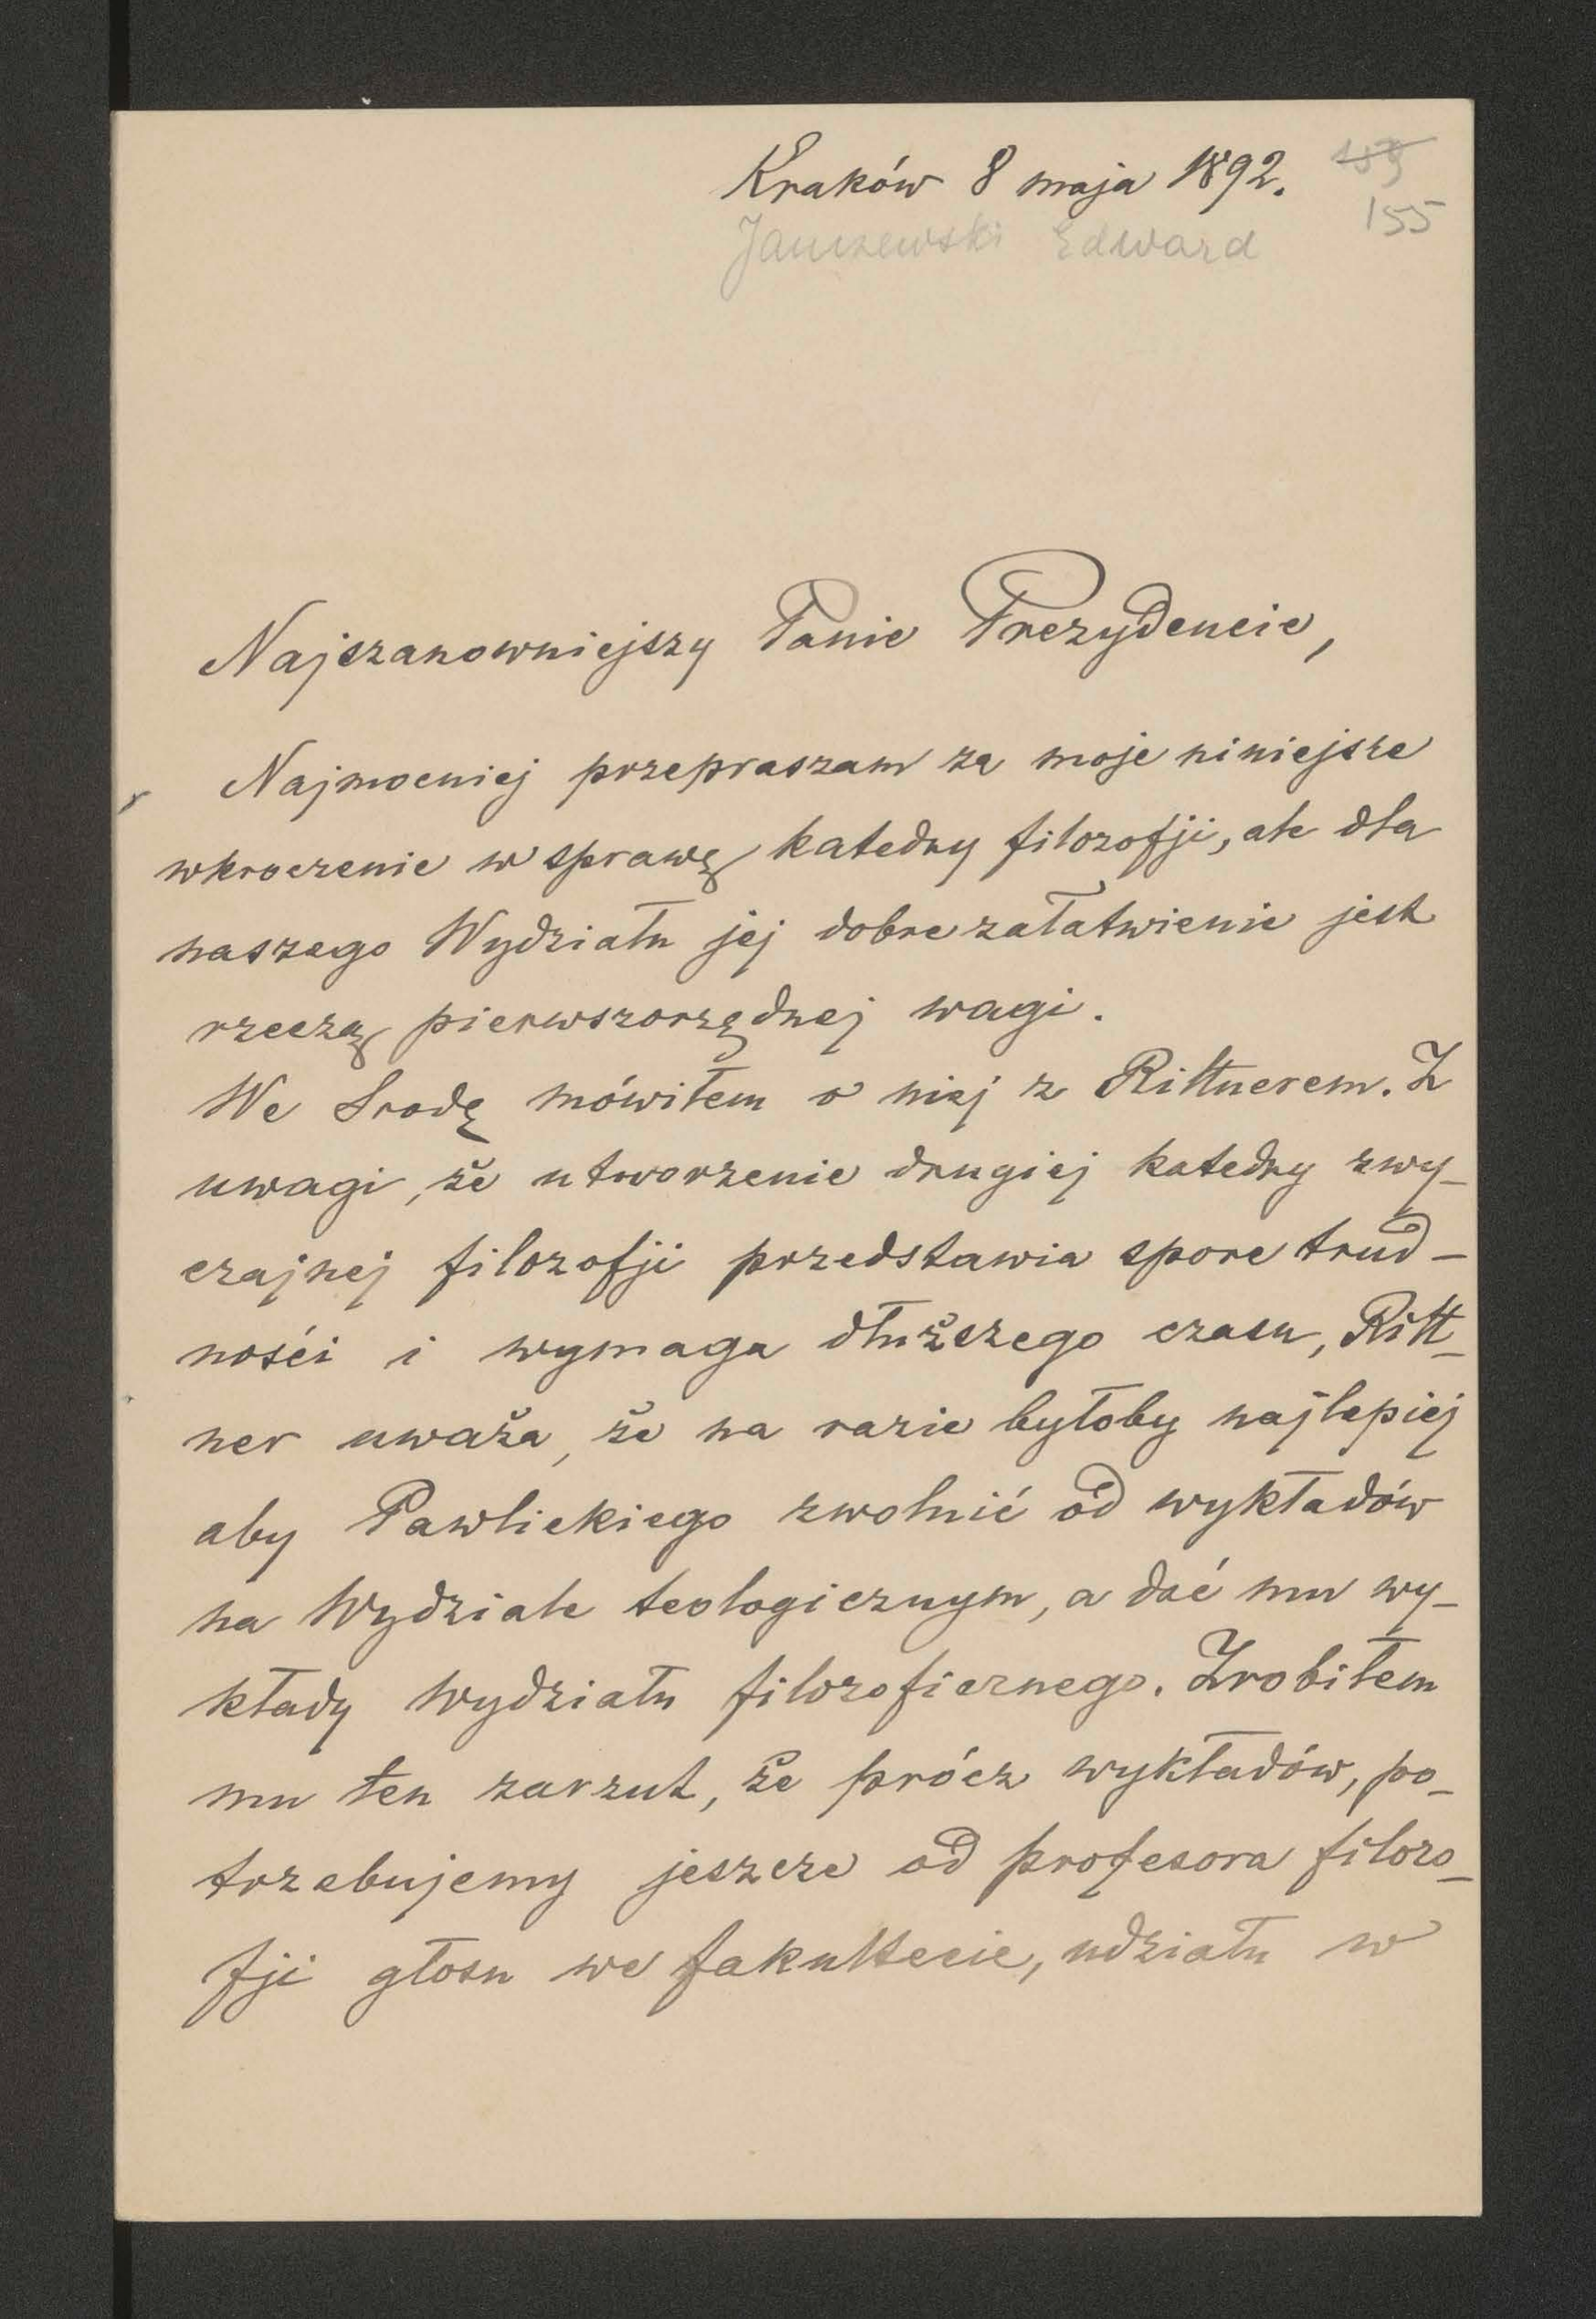 Kraków 8 maja 1892.
155
Janczewski Edward
Najszanowniejszy Panie Prezydencie,
Najmocniej przepraszam za moje niniejsze
wkroczenie w sprawę katedry filozofji, ale dla
naszego Wydziału jej dobre załatwienie jest
rzeczą pierwszorzędnej wagi.
We Srodę mówiłem o niej z Rittnerem. Z
uwagi, że utworzenie drugiej katedry zwy-
czajnej filozofji przedstawia spore trud-
nośći i wymaga dłuższego czasu, Ritt-
ner uważa, że na razie byłoby najlepiej
aby Pawlickiego zwolnić od wykładów
na Wydziale teologicznym, a dać mu wy-
kłady Wydziału filozoficznego. Zrobiłem
mu ten zarzut, że prócz wykładów, po-
trzebujemy jeszcze od profesora filozo-
fji głosu we fakultecie, udziału w